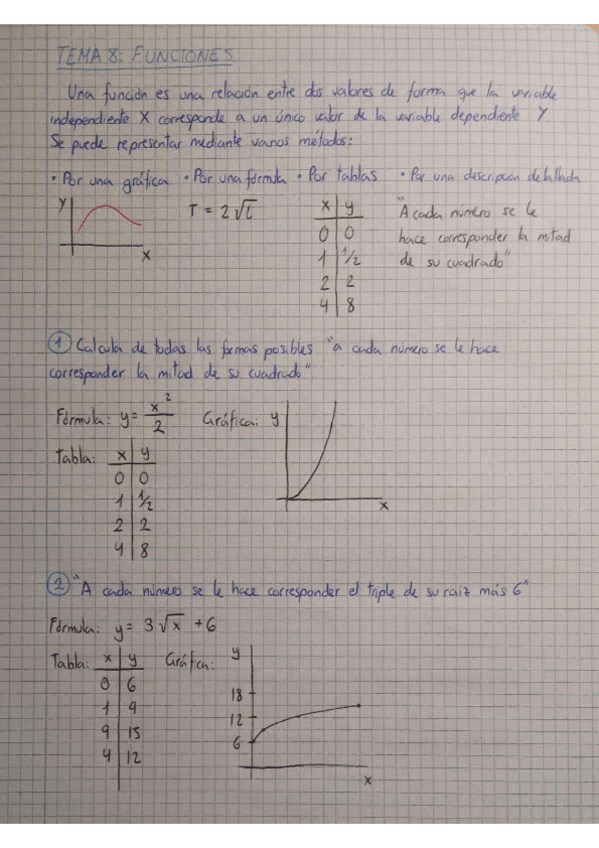 TEMA 8: FUNCIONES
Una función es una relación entre dos valores de forma que la variable
independiente X corresponde a un único valor de la variable dependiente Y
Se puede representar mediante varios métodos:
• Por una gráfica • Por una fórmula • Por tablas • Por una descripción detallada
y x
T = 2√l
x y
0 0
1 1/2
2 2
4 8
"A cada número se le
hace corresponder la mitad
de su cuadrado"
1 Calcula de todas las formas posibles "a cada número se le hace
corresponder la mitad de su cuadrado"
Fórmula: y = x²/2 Gráfica: y x
Tabla: x y
0 0
1 1/2
2 2
4 8
2 "A cada número se le hace corresponder el triple de su raiz más 6"
Fórmula: y = 3√x + 6
Tabla: x y
0 6
1 9
9 15
4 12
Gráfica: y
18
12
6
x